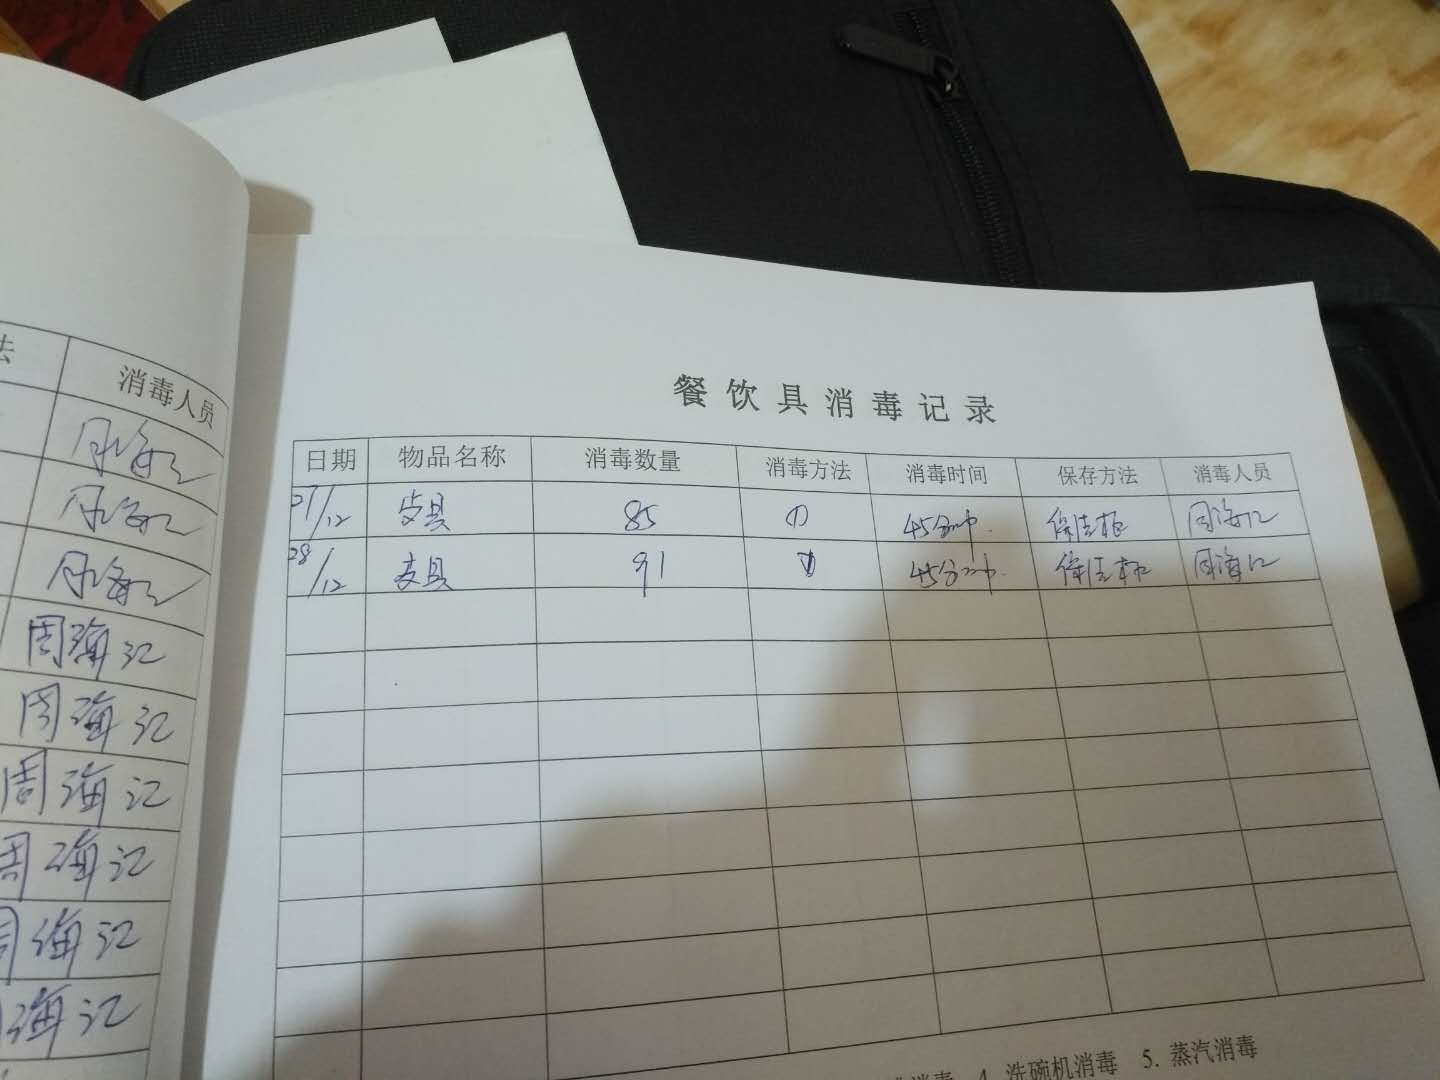 法
消毒人员
周海江
周海江
周海江
周海江
周海江
周海江
周海江
周海江
海江
餐饮具消毒记录
日期 物品名称 消毒数量 消毒方法 消毒时间 保存方法 消毒人员
27/12 皮具 85 ① 45分钟 保洁柜 周海江
28/12 皮具 91 ① 45分钟 保洁柜 周海江
消毒 4. 洗碗机消毒 5. 蒸汽消毒